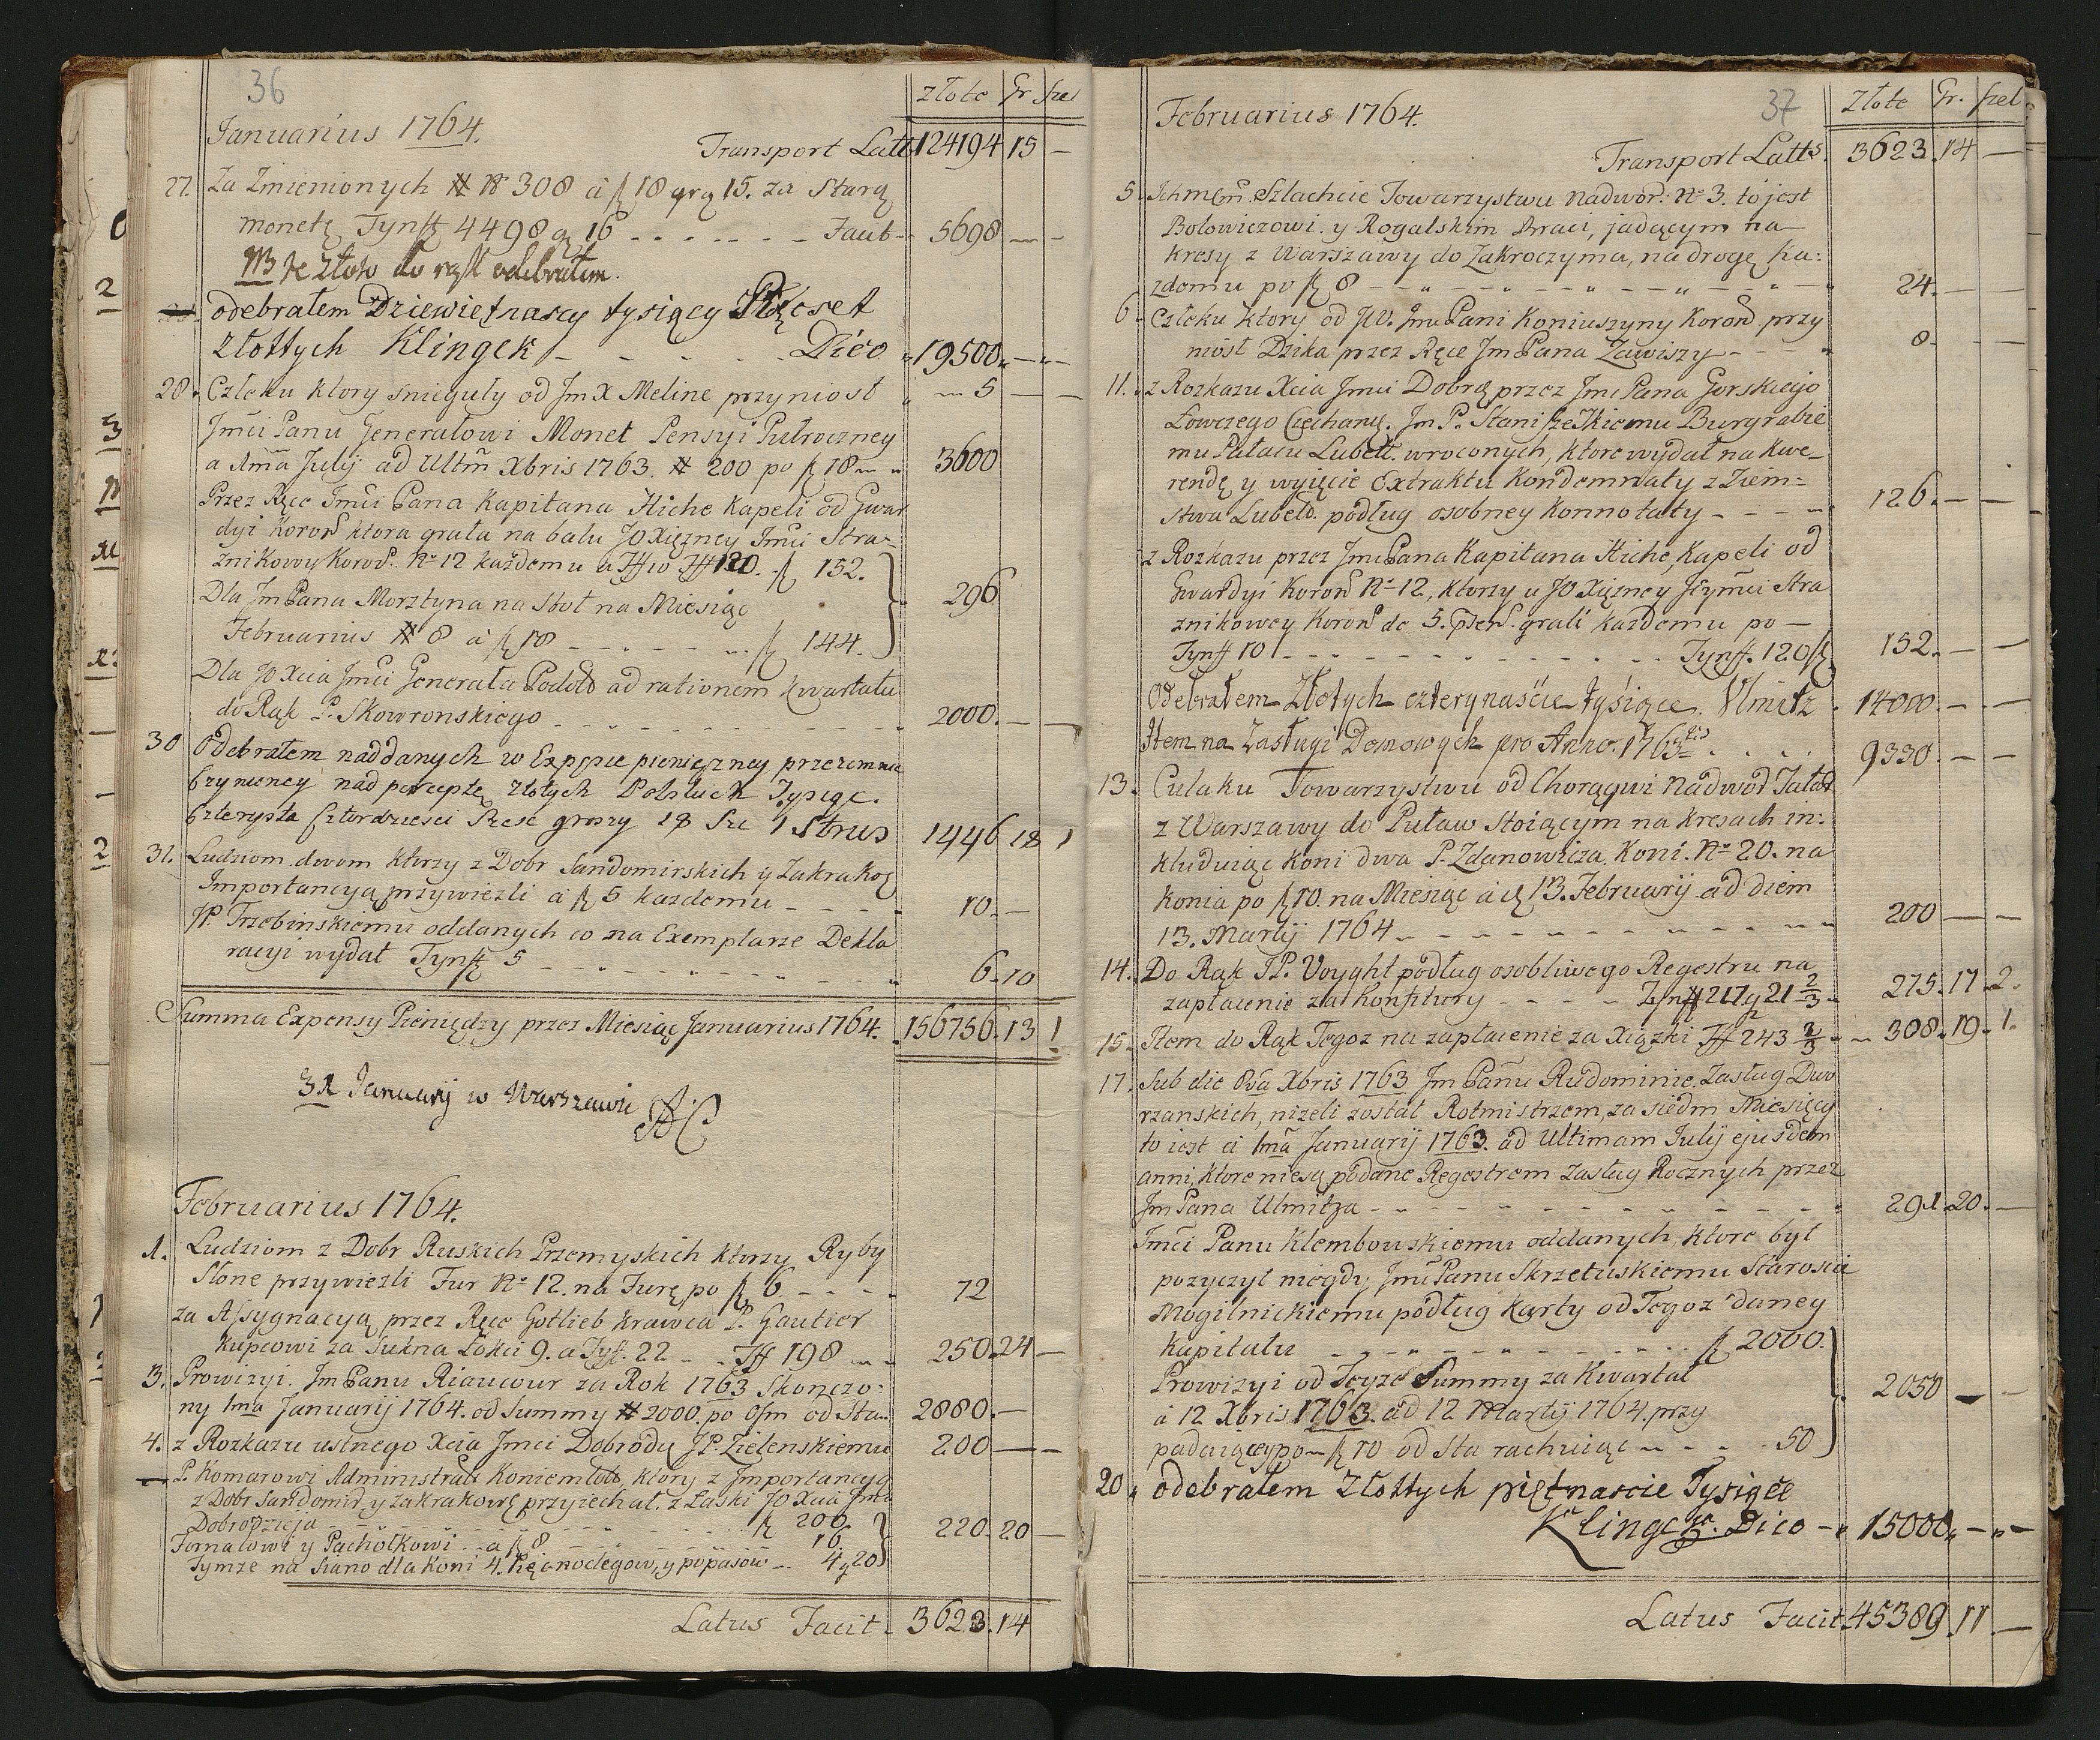 36
złote Gr szel
Januarius 1764.
Transport Latt. 124194 15 —
27. Za Zmienionych # N° 308 à fl 18 grą 15. za Starą
monetę Tynff 4498 g 16 Facit 5698 — —
NB te złoto do rąk odebrałem.
odebrałem Dziewiętnascy tysiący Pięcset
złottych Klingek Dico 19500 — —
28. Człeku ktory snieguły od Jm X Meline przyniosł 5 — —
Jmći Panu Generałowi Monet Pensyi Pułroczney
a 1ma July ad Ultm̃ Xbris 1763. # 200 po fl 18 3600
Przez Ręce Jmći Pana Kapitana Hiche Kapeli od Gwar
dyi Koroñ ktora grała na balu JO Xiężney Jmći Stra-
żnikowy Koroñ. N° 12 każdemu a Tff 10 Tff 120. fl 152.
Dla Jm Pana Morsztyna na Stoł na Miesiąc 296
Februarius # 8 à fl 18 fl 144.
Dla JO Xcia Jmći Generała Podolo ad rationem kwartału
do Rąk P. Skowronskiego 2000. —
30 Odebrałem naddanych w Exppsie pienięzney przezemnie
czynioney nad perceptę złłtych Polskich Tysiąc.
Czterysta Czterdziesci Szesc groszy 18 Sze 1 Strus 1446 18 1
31. Ludziom dwom ktorzy z Dobr Sandomirskich y Zakrakog
Importancyą przywiezli à fl 5 kazdemu 10. —
JP. Trzebinskiemu oddanych co na Exemplarze Dekla
racyi wydał Tynff 5 6. 10
Summa Expensy Pieniędzy przez Miesiąc Januarius 1764. 156756. 13 1
31 Januarij w Warszawie AC
Februarius 1764.
1. Ludziom z Dobr Ruskich Przemyskich ktorzy Ryby
Słone przywiezli Fur N° 12. na Furę po fl 6. 72
za Assygnacyą przez Ręce Gotlieb Krawca P. Gautier
Kupcowi za Sukna Łokci 9. a Tyff. 22 Tff 198 250. 24 —
3. Prowizyi. Jm Panu Riaucour za Rok 1763 Skonczo-
ny 1ma Januarij 1764. od Summy # 2000. po Osm od Sta 2880. —
4. z Rozkazu ustnego Xcia Jmci Dobrodę JP. Zielenskiemu 200 — —
P. Komarowi Administrati Koniemłoto, który z Importancyą
z Dobr Sandomir. y zakrakowę przyiechał. z Łaski JO Xcia Jmci
Dobrodzieja fl 200
Fornalowi y Pachołkowi à fl 8 16. 220. 20 —
Tymze na Siano dla Koni 4. Pięc noclegow, y popasow 4 g 20
Latus Facit 3623. 14
37
Złote Gr. szel
Februarius 1764.
Transport Latts. 3623. 14 —
5. Ichmćm̃ Szlachcie Towarzystwu Nadwor: N° 3. to jest
Bolowiczowi. y Rogalskim Braci, jadącym na
kresy z Warszawy do Zakroczyma, na drogę ka:
zdomu po fl 8 24. — —
6. Człeku ktory od JW. Jmc Pani Koniuszyny Koroñ przy
niosł Dzika przez Ręce Jm Pana Zawiszy 8. — —
11. z Rozkazu Xcia Jmći Dobrę przez Jmc Pana Gorskiego
Łowczego Ciechang. Jm P. Staniszeskiemu Burgrabie
mu Pałacu Lubell. wroconych, ktore wydał na kwe-
rendę y wyjęcie Extraktu Kondemnaty z Ziem-
stwa Lubelō. podług osobney Konnotaty 126. — —
z Rozkazu przez Jmc Pana Kapitana Hiche, Kapeli od
Gwardyi Koroñ N° 12, ktorzy u JO Xiężney Jeymći Stra
znikowey Koroñ de 5. praeñ. grali każdemu po —
Tynff 10 Tynff. 120 fl 152. — —
Odebrałem Złotych czterynaście tysięcy. Ulmitz 14000. — —
Item na Zasługi Domowych pro Anno. 1763tio 9330. — —
13. Culaku Towarzystwu od Chorągwi Nadwoř Tatař
z Warszawy do Puław stoiącym na kresach in-
kluduiąc koni dwa P. Zdanowicza. Koni. N° 20. na
konia po fl 10. na Miesiąc à d 13. Februarij ad diem
13. Martij 1764 200 — —
14. Do Rąk JP. Voyght podług osobliwego Regestru na
zapłacenie za Konfitury Tynff 217 g 21 2/3 275. 17 2.
15. Item do Rąk Tegoz na zapłacenie za Xiązki Tff 243 2/3 308. 19. 1.
17. Sub die 8va Xbris 1763 Jm Panu Rudominie. Zasług Dwo
rzanskich, nizeli został Rotmistrzem, za siedm Miesięcy
to iest à 1mã Januarij 1763. ad Ultimam Julij ejusdem
anni, ktore niesą podane Regestrem Zasług Rocznych przez
Jm Pana Ulmitza 291. 20. —
Jmći Panu Klembowskiemu oddanych, ktore był
pozyczył niegdy Jmć Panu Skrzetuskiemu Staroscie
Mogilnickiemu podług Karty od Tegoz daney
Kapitału fl 2000.
Prowizyi od Teyze Summy za Kwartał 2050 — —
à 12 Xbris 1763. ad 12 Martij 1764. przy
padaiącey po fl 10 od Sta rachuiąc 50
20. odebrałem Złottych piętnascie Tysięcÿ
Klingek. Dico 15000. — —
Latus Facit. 45389. 11 —